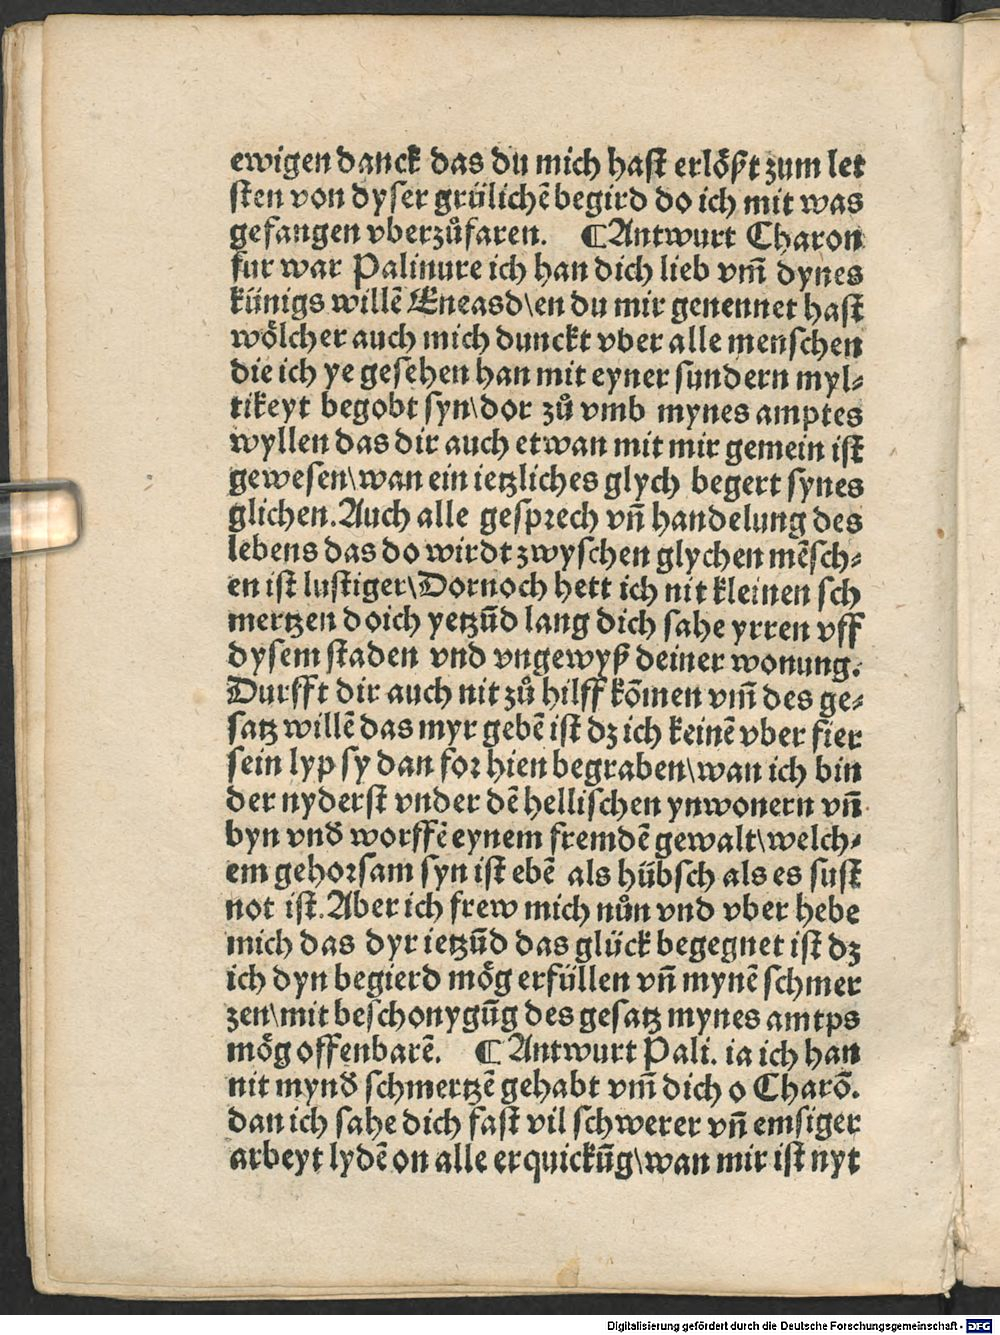 ewigen danck das du mich hast erlößt zum let
sten von dyser grülichē begird do ich mit was
gefangen vberzůfaren. ¶Antwurt Charon
fur war Palinure ich han dich lieb vm̄ dynes
künigs willē Eneasd\en du mir genennet hast
wölcher auch mich dunckt vber alle menschen
die ich ye gesehen han mit eyner sundern myl⸗
tikeyt begobt syn\dor zů vmb mynes amptes
wyllen das dir auch etwan mit mir gemein ist
gewesen\wan ein ietzliches glych begert synes
glichen. Auch alle gesprech vn̄ handelung des
lebens das do wirdt zwyschen glychen mēsch⸗
en ist lustiger\Dornoch hett ich nit kleinen sch
mertzen doich yetzūd lang dich sahe yrren vff
dysem staden vnd vngewyß deiner wonung.
Durfft dir auch nit zů hilff kōmen vm̄ des ge⸗
satz willē das myr gebē ist dz ich keinē vber fier
sein lyp sy dan for hien begraben\wan ich bin
der nyderst vnder dē hellischen ynwonern vn̄
byn vnd̄ worffē eynem fremdē gewalt\welch⸗
em gehorsam syn ist ebē als hübsch als es sust
not ist. Aber ich frew mich nůn vnd vber hebe
mich das dyr ietzūd das glück begegnet ist dz
ich dyn begierd mög erfüllen vn̄ mynē schmer
zen\mit beschonygūg des gesatz mynes amtps
mög offenbarē. ¶ Antwurt Pali. ia ich han
nit mynd̄ schmertzē gehabt vm̄ dich o Charō.
dan ich sahe dich fast vil schwerer vn̄ emsiger
arbeyt lydē on alle erquickūg\wan mir ist nyt
Digitalisierung gefördert durch die Deutsche Forschungsgemeinschaft - DFG